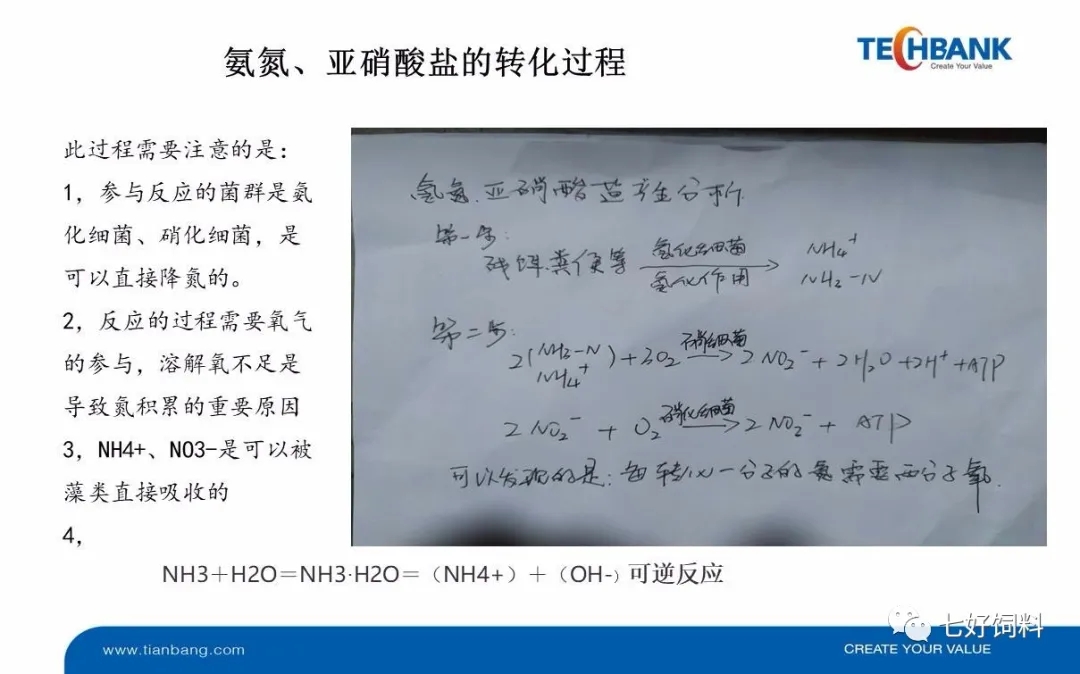 氨氮、亚硝酸盐的转化过程
TECHBANK
Create Your Value
此过程需要注意的是：
1，参与反应的菌群是氨
化细菌、硝化细菌，是
可以直接降氮的。
2，反应的过程需要氧气
的参与，溶解氧不足是
导致氮积累的重要原因
3，NH4+、NO3-是可以被
藻类直接吸收的
4，
氨氮.亚硝酸盐产生分析.
第一步:
残饵.粪便等 氨化细菌 氨化作用 NH₄⁺ NH₃-N
第二步:
2(NH₃-N NH₄⁺)+3O₂ 硝化细菌 → 2NO₂⁻+2H₂O+2H⁺+ATP
2NO₂⁻ + O₂ 硝化细菌 → 2NO₂⁻ + ATP
可以发现的是: 每转化一分子的氨需要两分子氧.
NH3＋H2O＝NH3·H2O＝（NH4+）＋（OH-）可逆反应
七好饲料
www.tianbang.com
CREATE YOUR VALUE